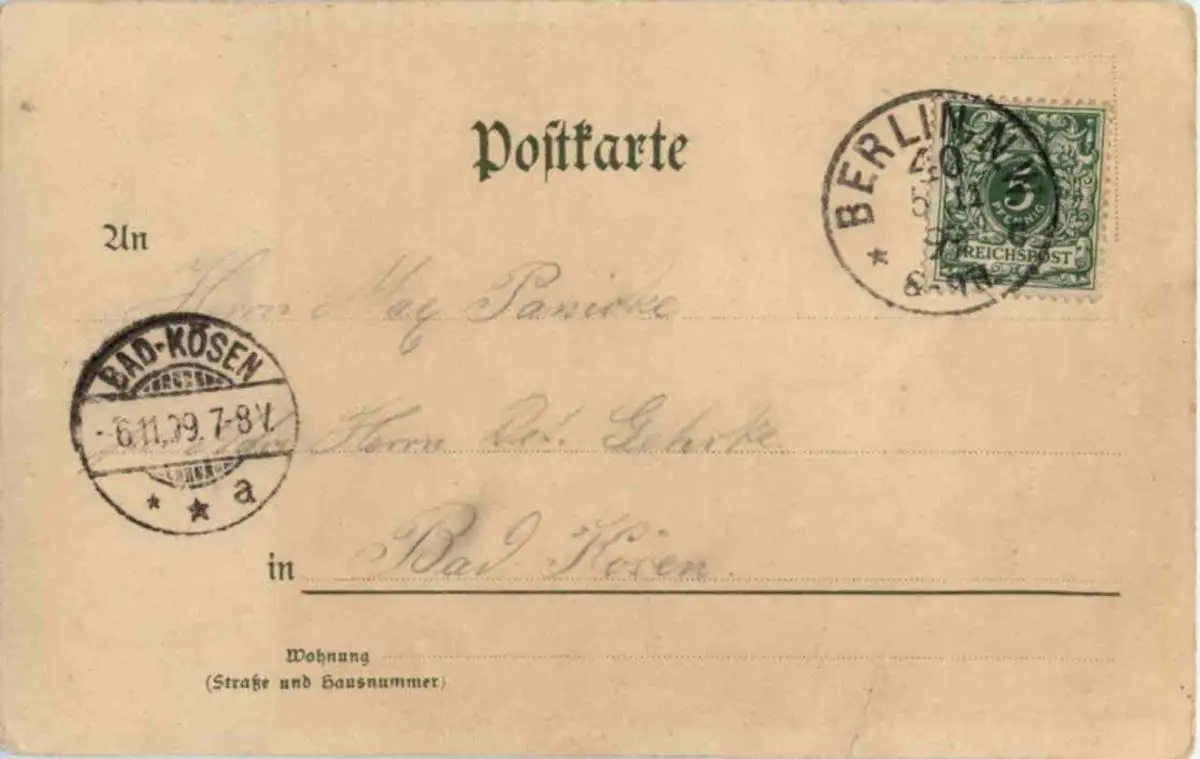 Postkarte
BERLIN.N.W.
40
5 11
5
PFENNIG
REICHSPOST
An
Herrn Max Panicke
BAD-KÖSEN
-6.11.99.7-8V.
a
Herrn Gehrke
in Bad Kösen.
Wohnung
(Straße und Hausnummer)